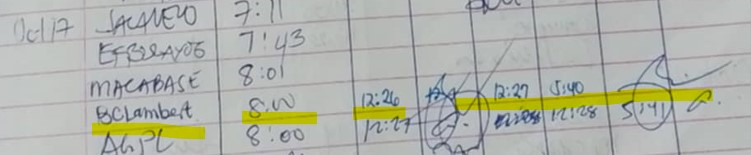 Oct 17 JACANEVO 7:11
7:43
MACABASE 8:01
BCLambert 8:00 12:26 12:27 5:40
8:00 12:27 12:28 5:41